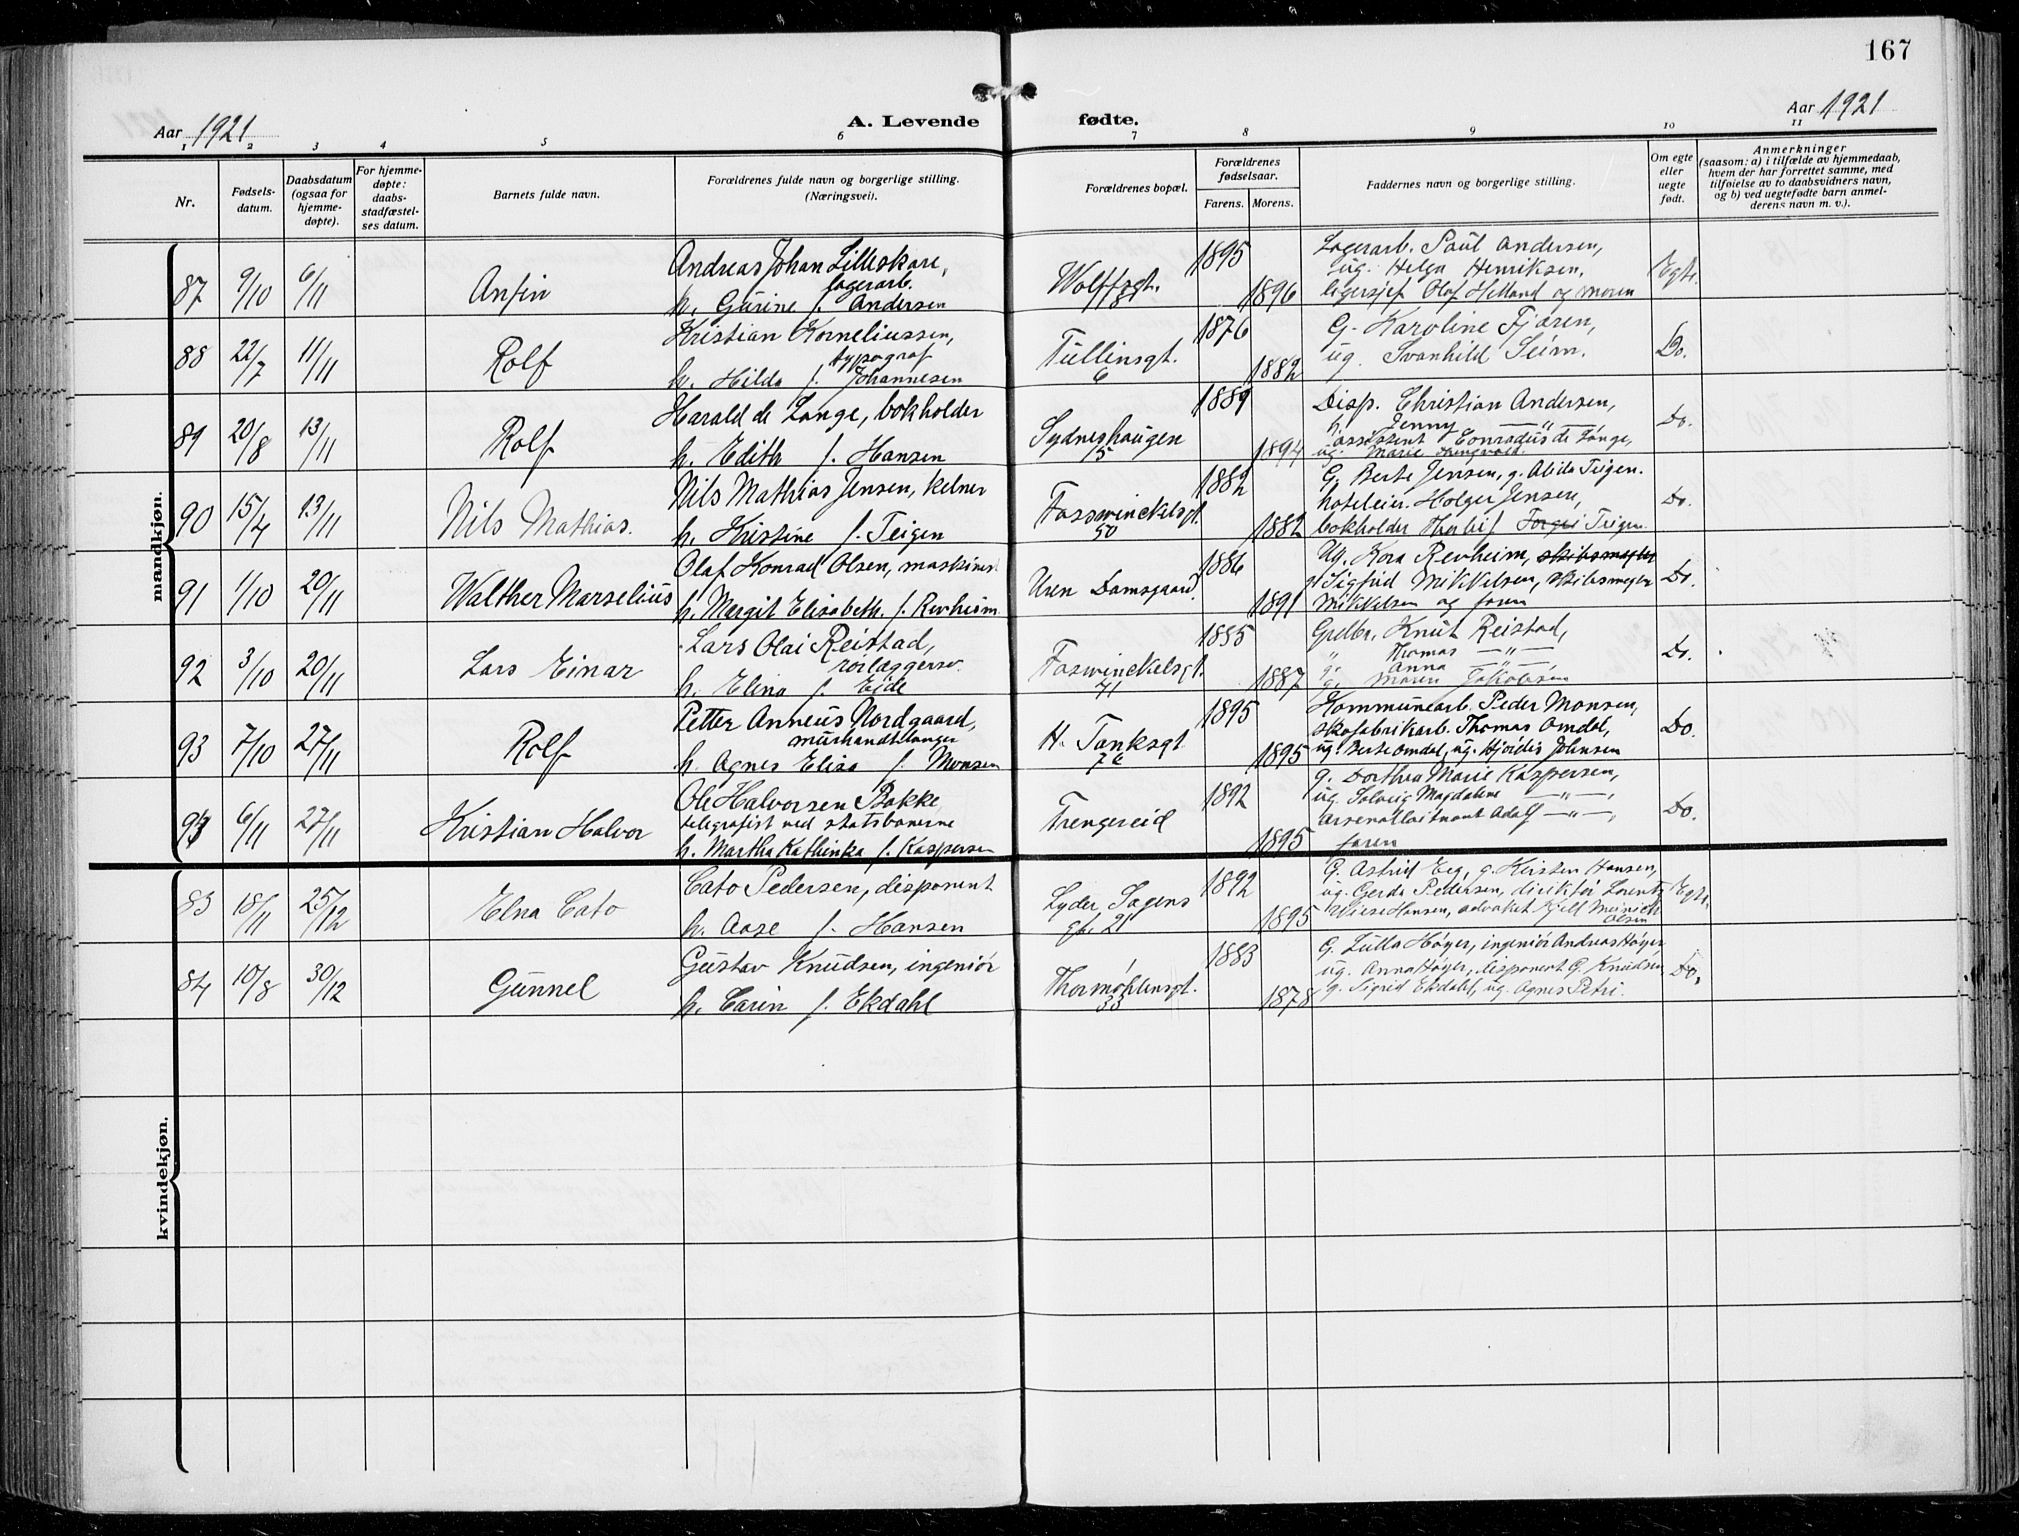 167
Aar 1921
A. Levende fødte.
Aar 1921
1 2 3 4 5 6 7 8 9 10 11
Nr.
Fødsels-
datum.
Daabsdatum
(ogsaa for
hjemme-
døpte).
For hjemme-
døpte:
daabs-
stadfæstel-
ses datum.
Barnets fulde navn.
Forældrenes fulde navn og borgerlige stilling.
(Næringsvei).
Forældrenes bopæl.
Forældrenes
fødselsaar.
Farens. Morens.
Faddernes navn og borgerlige stilling.
Om egte
eller
uegte
født.
Anmerkninger
(saasom: a) i tilfælde av hjemmedaab,
hvem der har forrettet samme, med
tilføielse av to daabsvidners navn,
og b) ved uegtefødte barn anmel-
derens navn m. v.).
mandkjøn.
87 9/10 6/11 Anfin
Andreas Johan Lilleskare,
lagerarb.
h. Gurine f. Andersen
Wolffsgt.
1895 1896
Lagerarb. Paul Andersen,
ug. Helga Henriksen,
lagersjef Olaf Helland og moren
Egte.
88 22/7 11/11 Rolf
Kristian Korneliussen,
typograf
h. Hilda f. Johannesen
Tullinsgt.
6
1876 1882
G. Karoline Fjæren,
ug. Svanhild Seim.
Do.
89 20/8 13/11 Rolf
Harald de Lange, bokholder
h. Edith f. Hansen
Sydneshaugen
15
1889 1894
Disp. Christian Andersen,
h. Jenny —"—
assistent Conradus de Lange,
ug. Marie
Do.
90 15/4 13/11 Nils Mathias.
Nils Mathias Jensen, kelner
h. Kristine f. Teigen
Fosswinckelsgt.
50
1882 1882
G. Berte Jensen, g. Alida Teigen.
hoteleier Holger Jensen,
bokholder Teigen
Do.
91 1/10 20/11 Walther Marselius
Olaf Konrad Olsen, maskinist
h. Margit Elisabeth f. Revheim
Uren Damsgaard.
1886 1891
Ug. Kora Revheim, skibsmegler
Sigfrid Mikkelsen, skibsmegler
Mikkelsen og faren
Do.
92 3/10 20/11 Lars Einar
Lars Olai Reistad,
rørlæggersv.
h. Elina f. Eide
Foswinckelsgt.
71
1885 1887
Gaelbr. Knut Reistad,
" Thomas —"—
g. Anna —"—
g. Maren Jakobsen
Do.
93 7/10 27/11 Rolf
Petter Anneus Nordgaard,
murhandtlanger
h. Agnes Elisa f. Monsen
H. Tanksgt
76
1895 1895
Kommunearb. Peder Monsen,
skofabrikarb. Thomas Omdal,
ug. Berte Omdal, ug. Hjørdis Johnsen
Do.
94 6/11 27/11 Kristian Halvor
Ole Halvorsen Bakke
telegrafist ved statsbanerne
h. Martha Kathinka f. Kaspersen
Trengereid
1892 1895
g. Dorthea Marie Kaspersen,
ug. Solveig Magdalene —"—,
arsenalløitnant Adolf —"—,
faren
Do.
kvindekjøn.
83 18/11 25/12 Elna Cato
Cato Pedersen, disponent
h. Aase f. Hansen
Lyder Sagens
gt. 21
1892 1895
G. Astrid Eeg, g. Kirsten Hansen,
ug. Gerda Pedersen, direktør Lorentz
Wiese Hansen, advokat Kjell Meinich
Olsen
Egte.
84 10/8 30/12 Gunnel
Gustav Knudsen, ingeniør
h. Carin f. Ekdahl
Thormøhlensgt.
33
1883 1878
G. Lulla Høyer, ingeniør Andreas Høyer
ug. Anna Høyer, disponent G. Knudsen
g. Sigrid Ekdahl, ug. Agnes Petri.
Do.